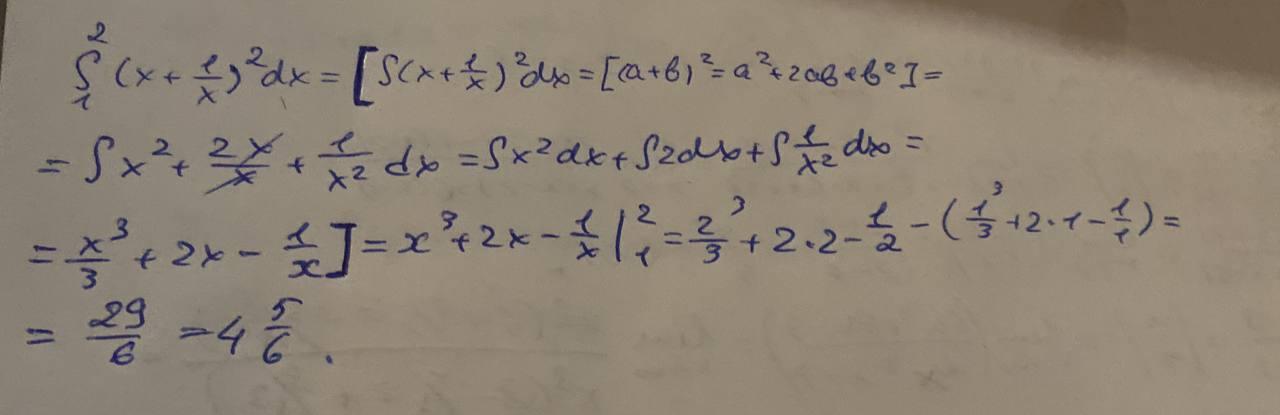 ∫₁² (x + 1/x)² dx = [∫(x + 1/x)² dx = [(a+b)² = a² + 2ab + b²] =
= ∫ x² + 2x/x + 1/x² dx = ∫x² dx + ∫2dx + ∫ 1/x² dx =
= x³/3 + 2x - 1/x] = x³ + 2x - 1/x |₁² = 2³/3 + 2·2 - 1/2 - (1³/3 + 2·1 - 1/1) =
= 29/6 = 4 5/6.